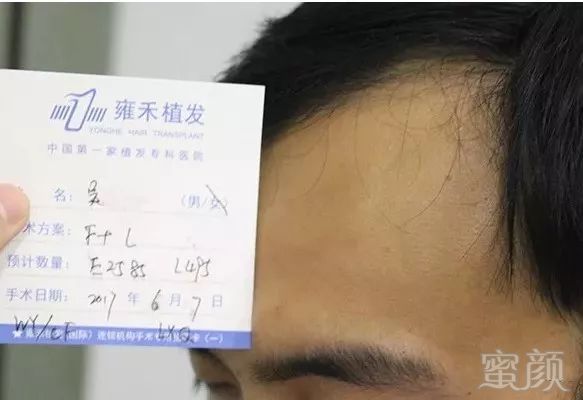 雍禾植发
YONGHE HAIR TRANSPLANT
中国第一家植发专科医院
名: 吴 (男/女)
术方案: F+L
预计数量: E2585 L495
手术日期: 2017 年 6 月 7 日
WY/CF
国际)连锁机构手术
(一)
蜜颜